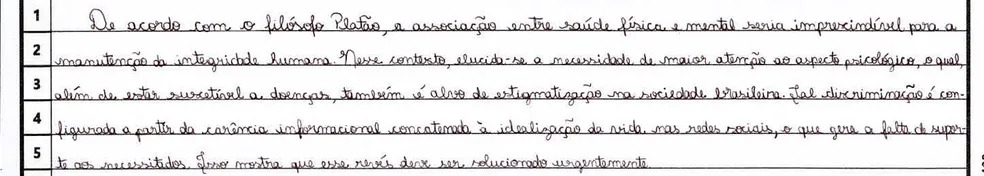 1 De acordo com o filósofo Platão, a associação entre saúde física e mental seria imprescindível para a
2 manutenção da integridade humana. Nesse contexto, elucida-se a necessidade de maior atenção ao aspecto psicológico, o qual,
3 além de estar suscetível a doenças, também é alvo de estigmatização na sociedade brasileira. Tal discriminação é con-
4 figurada a partir da carência informacional concatenada à idealização da vida nas redes sociais, o que gera a falta de supor-
5 te aos necessitados. Isso mostra que esse revés deve ser solucionado urgentemente.